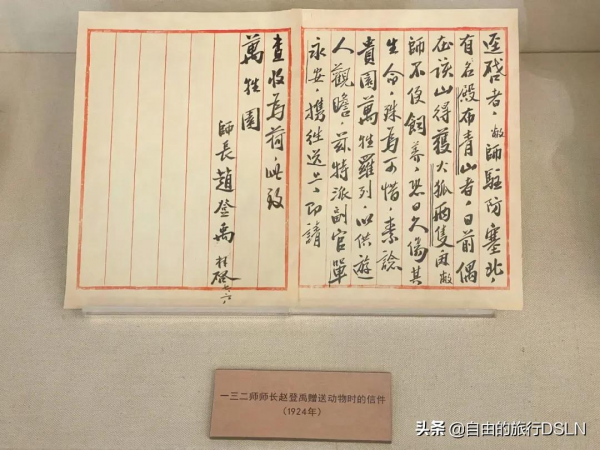 逕啓者，敝師駐防塞北，
有名殿布青山者，日前偶
在該山得獲火狐兩隻敝
師不便飼養，恐日久傷其
生命，殊為可惜，素諗
貴園萬牲羅列，以供遊
人觀瞻，茲特派副官單
永安，携往送上，即請
查收為荷，此致
萬牲園
師長趙登禹
一三二师师长赵登禹赠送动物时的信件
（1924年）
头条 @自由的旅行DSLN